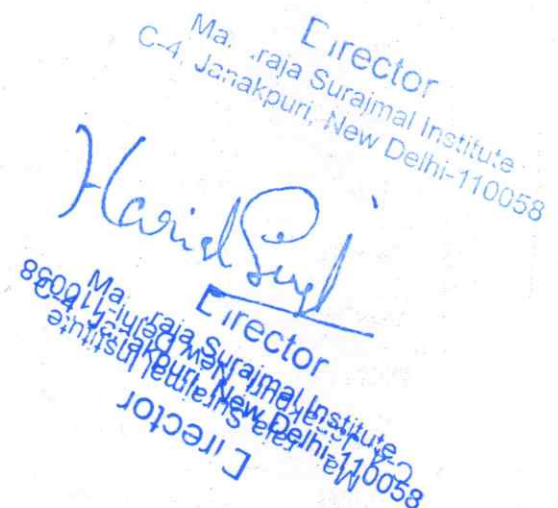 Director
Ma. .raja Surajmal Institute
C-4, Janakpuri, New Delhi-110058
Director
Ma. .raja Surajmal Institute
C-4, Janakpuri, New Delhi-110058
Director
Ma. .raja Surajmal Institute
C-4, Janakpuri, New Delhi-110058